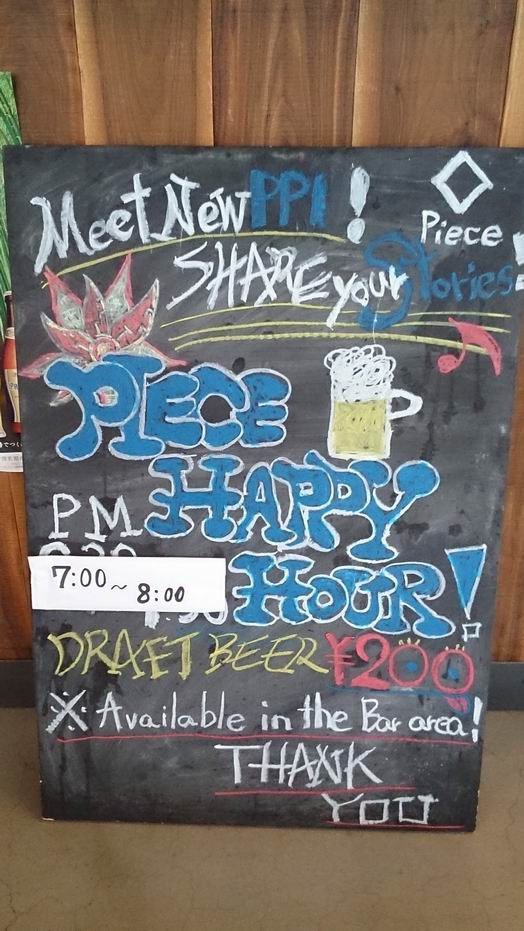 Meet New PPl!
Piece
SHARE your Stories!
PIECE
HAPPY
PM
7:00~8:00
HOUR!
DRAFT BEER ¥200
※ Available in the Bar area!
THANK
YOU